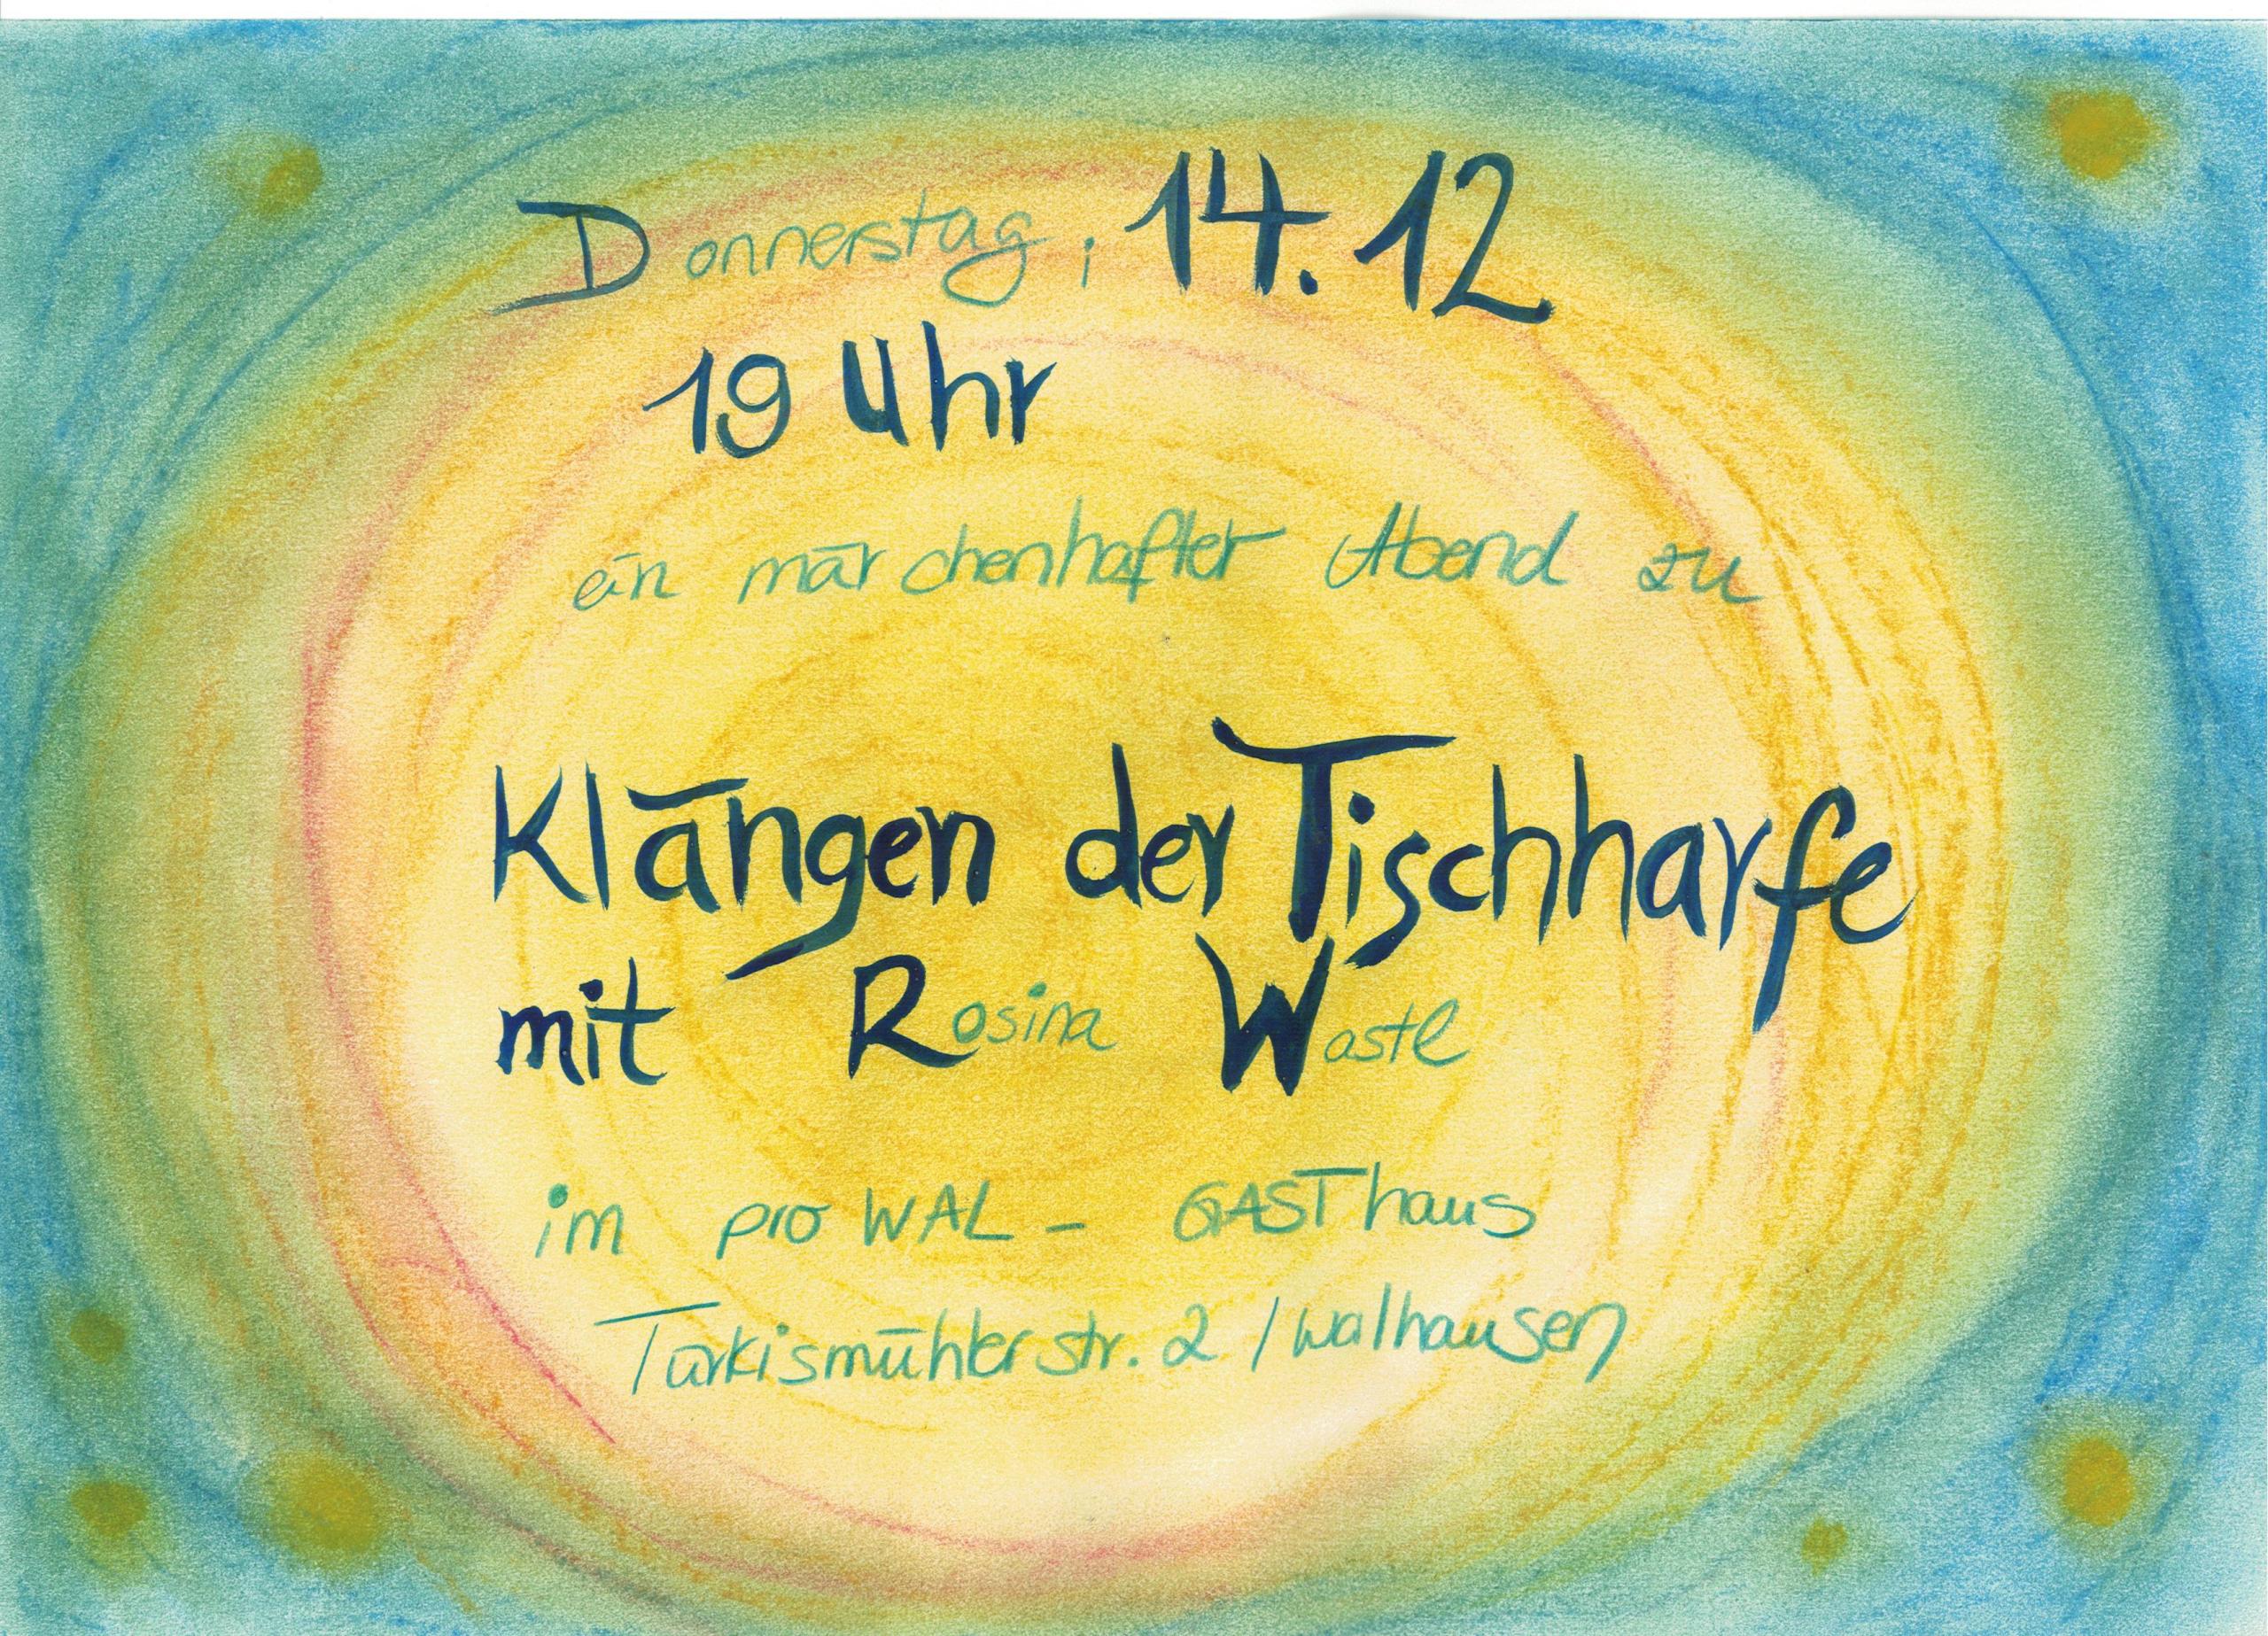 Donnerstag, 14.12
19 Uhr
ein märchenhafter Abend zu
Klängen der Tischharfe
mit Rosina Wastl
im pro WAL - GASThaus
Türkismühlerstr. 2 / Walhausen